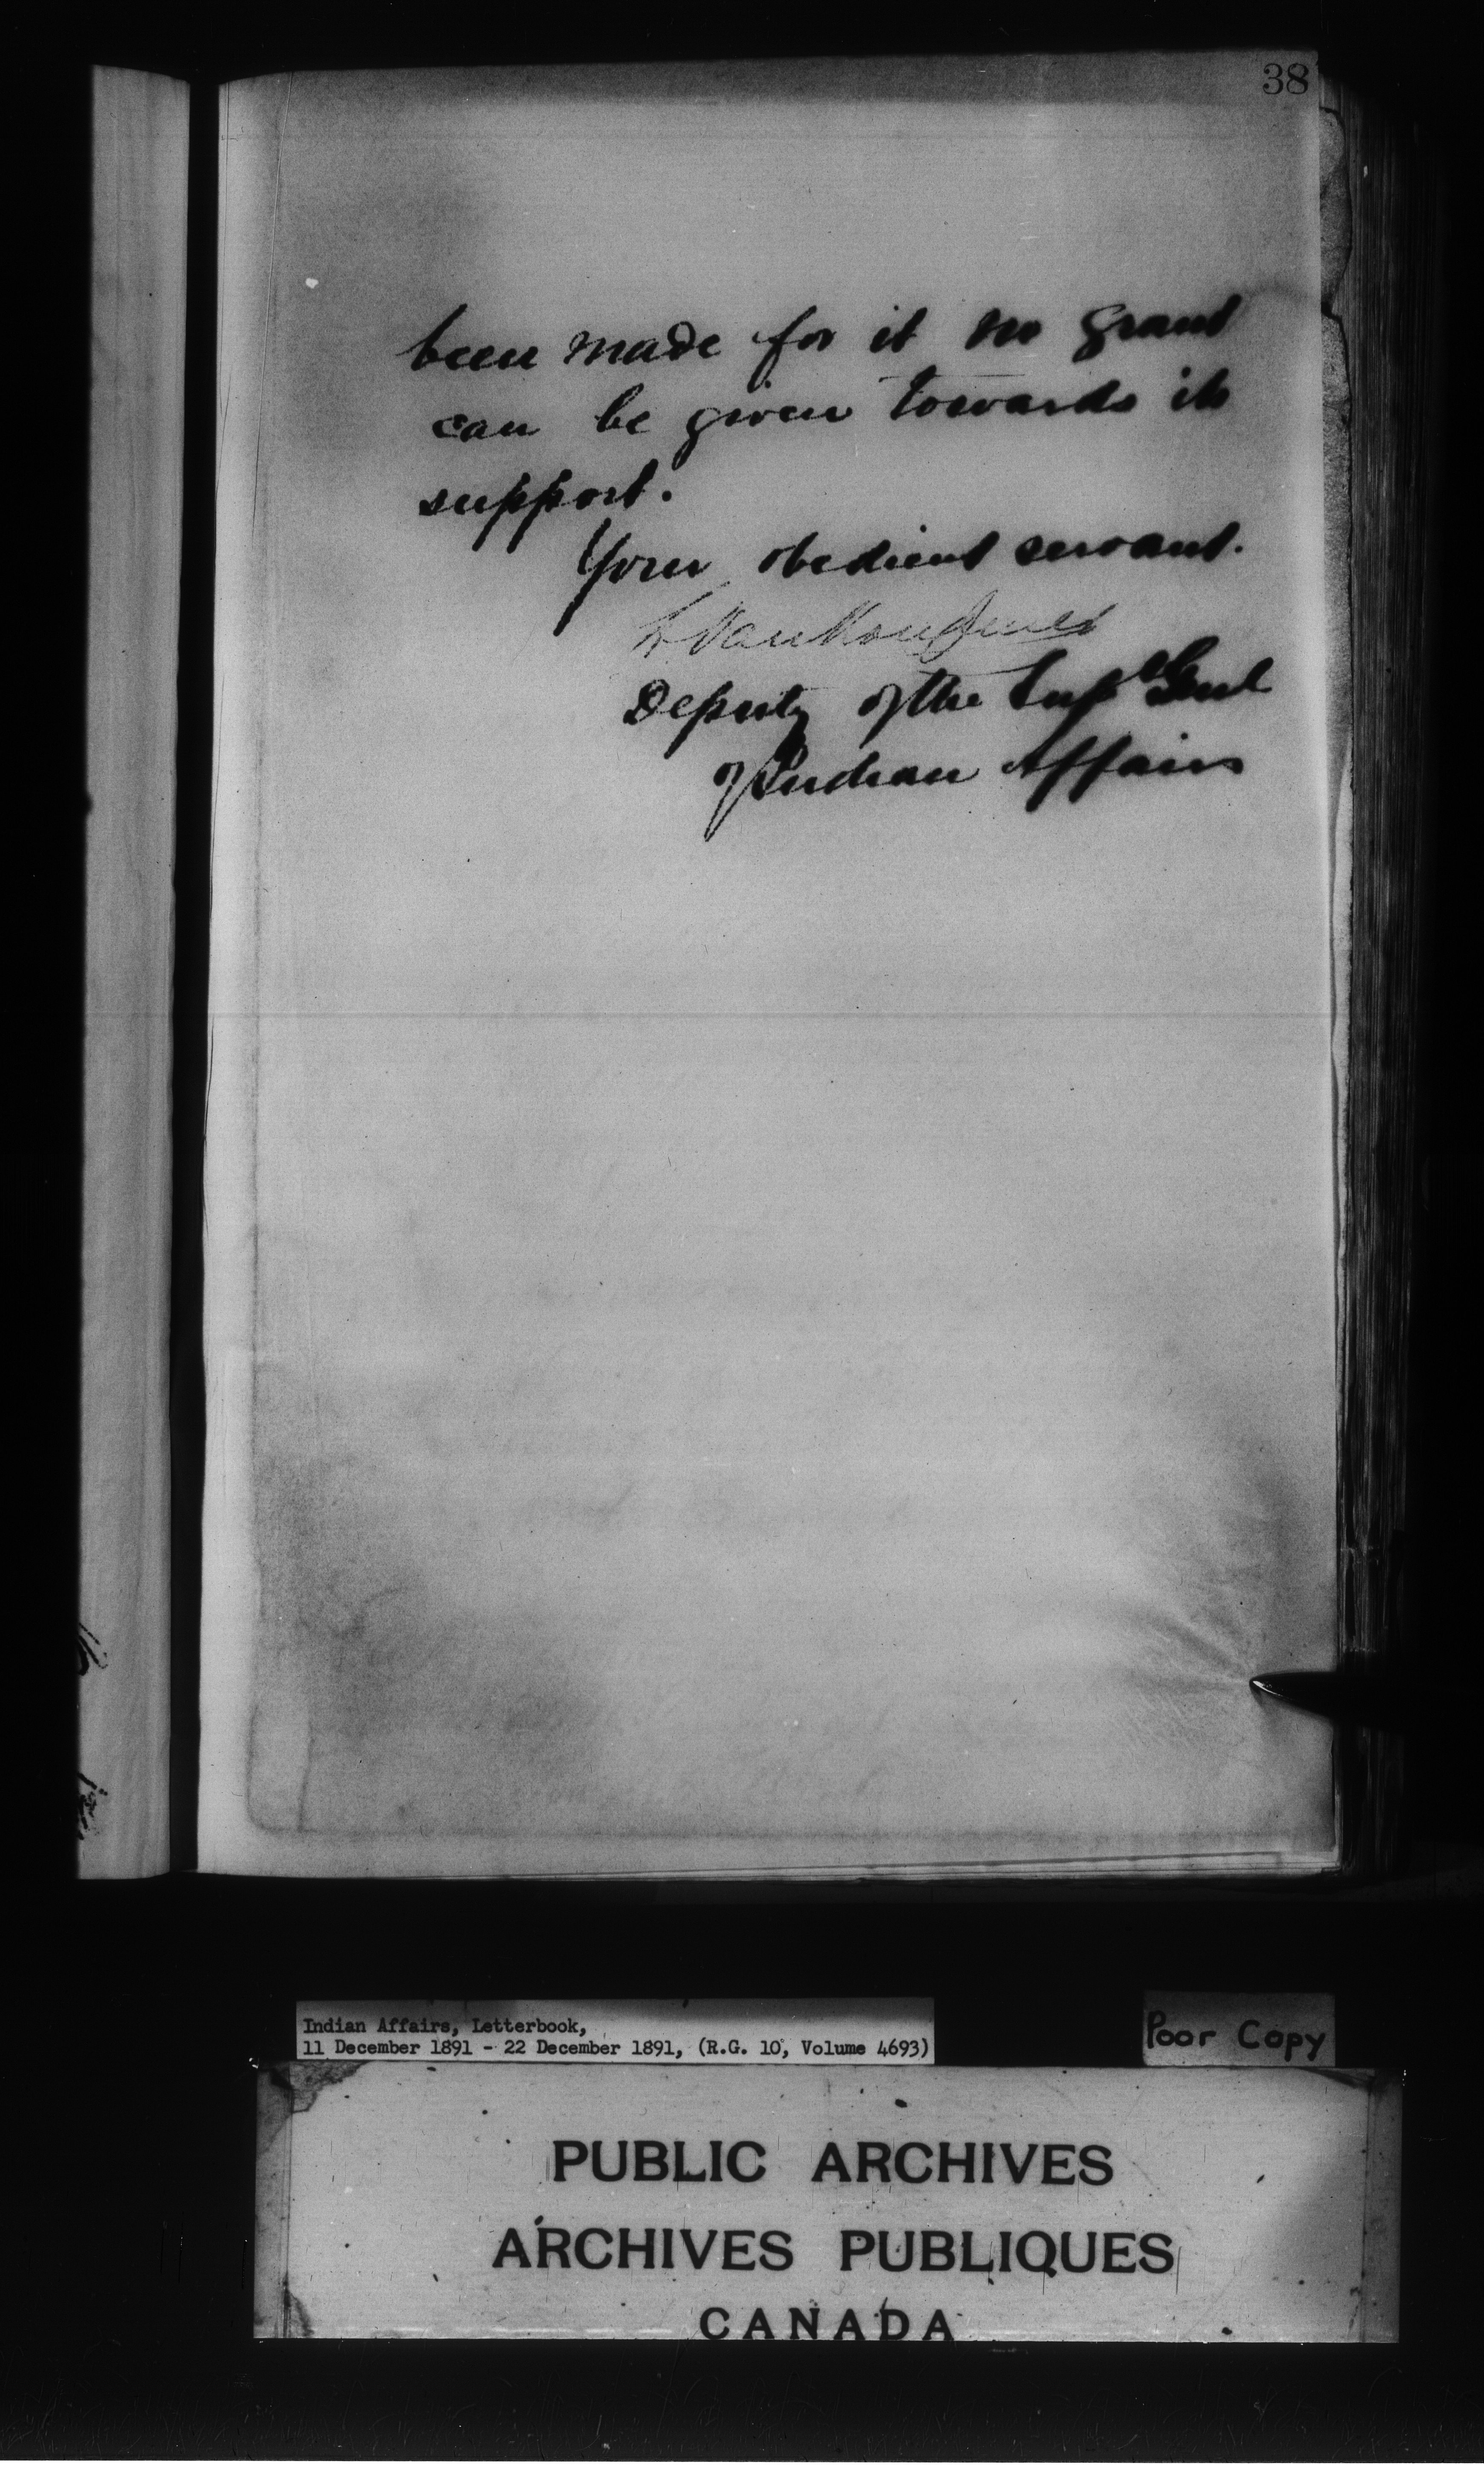 38
been made for it no grant
can be given towards its
support.
Your obedient servant.
L Vankoughnet
Deputy of the Supt Genl
of Indian Affairs
Indian Affairs, Letterbook,
11 December 1891 - 22 December 1891, (R.G. 10, Volume 4693)
Poor Copy
PUBLIC ARCHIVES
ARCHIVES PUBLIQUES
CANADA